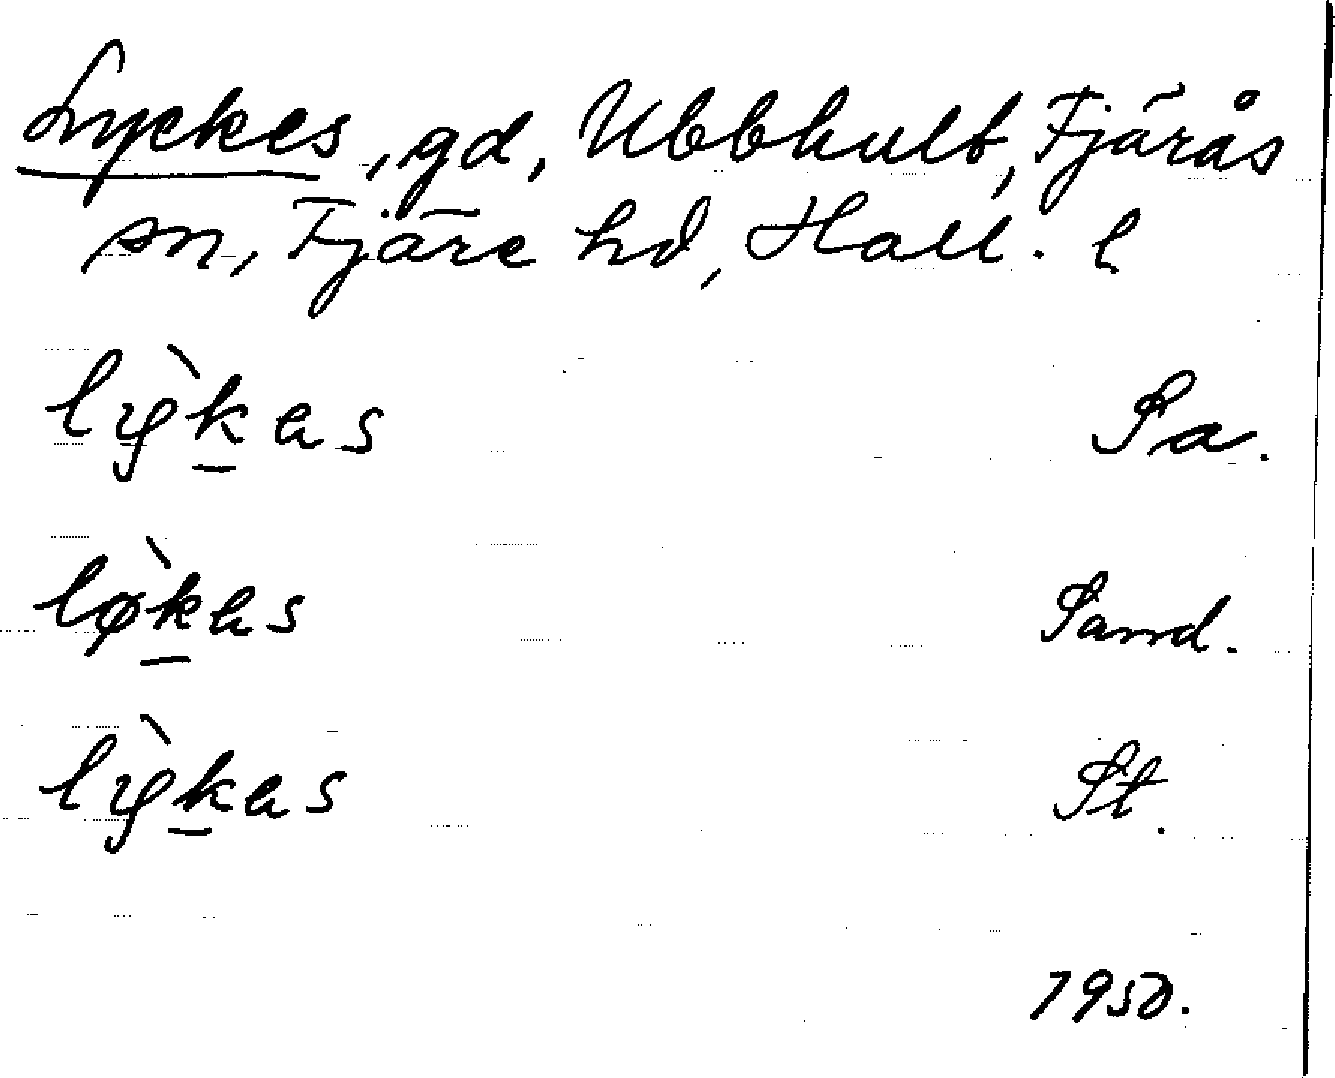 Lyckes, gd, Ubbhult, Fjärås
sn, Fjäre hd, Hall. l
lỳkas Sa.
lø̀kas Sand.
lỳkas St.
1950.